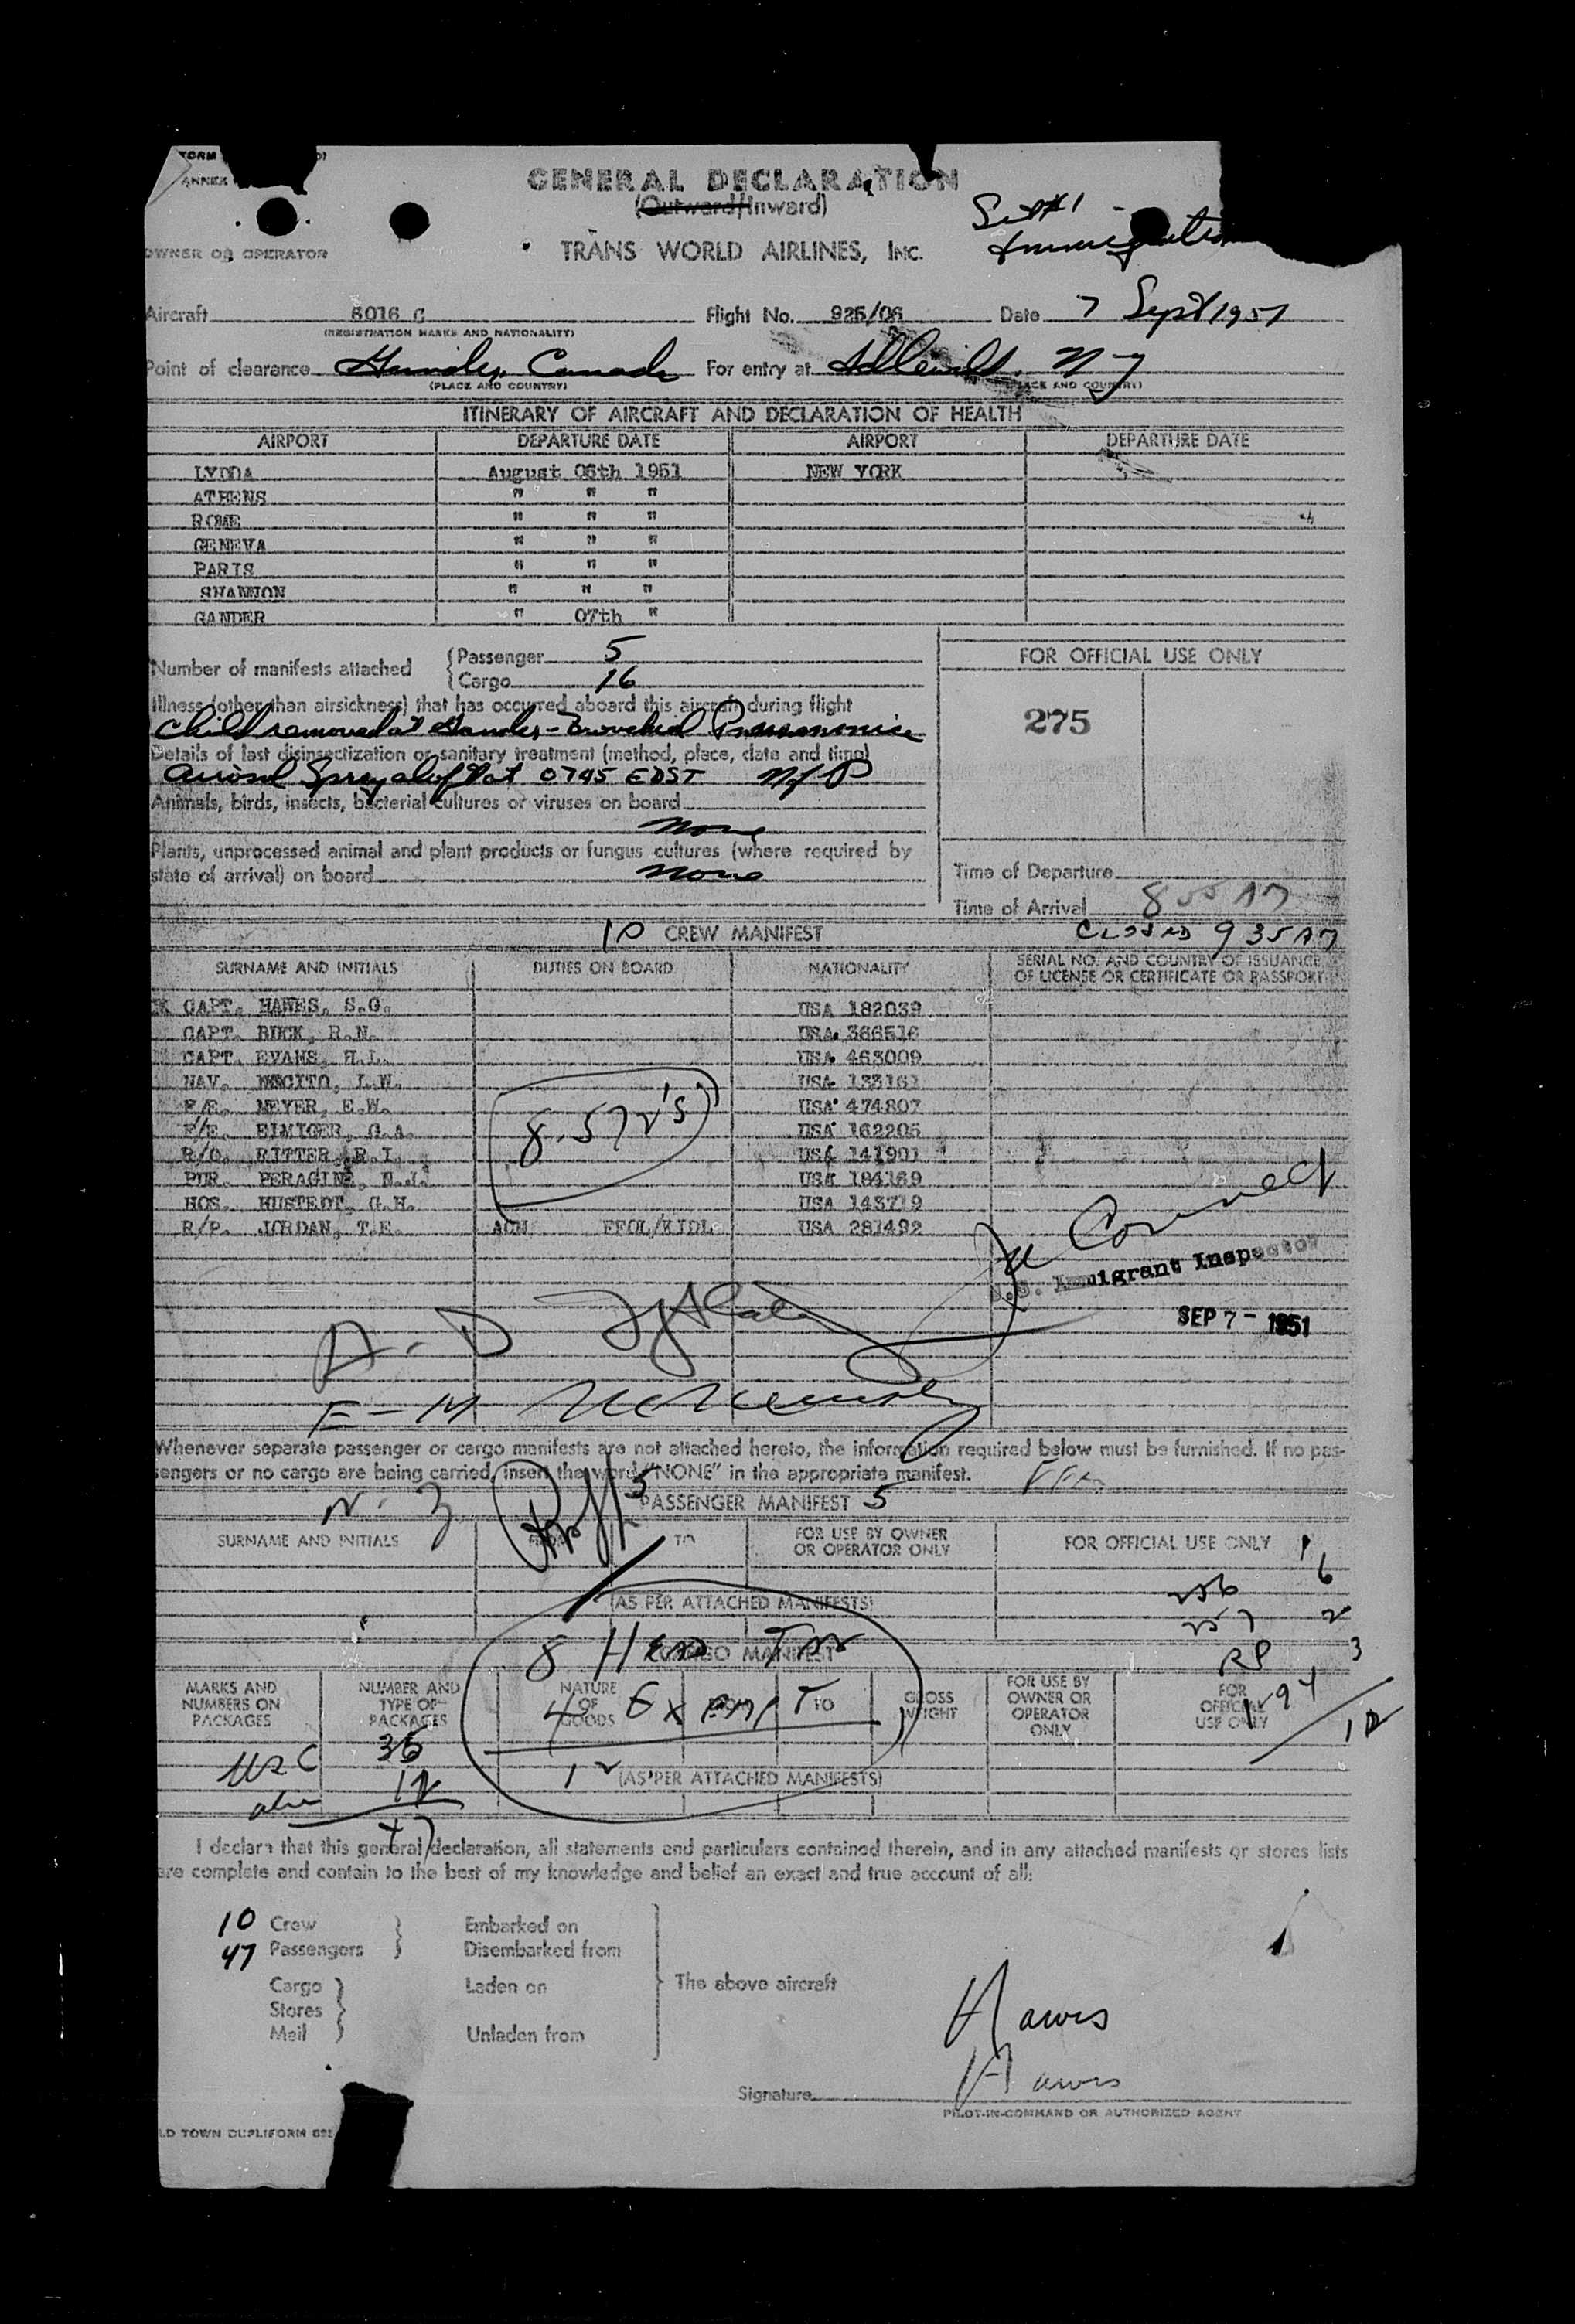 FORM
ANNEX
GENERAL DECLARATION
(Outward/Inward)
Immigration
OWNER OR OPERATOR
TRANS WORLD AIRLINES, INC.
Aircraft 6016 C Flight No. 925/06 Date 7 Sept 1951
(REGISTRATION MARKS AND NATIONALITY)
Point of clearance Gander, Canada For entry at Idlewild, NY
(PLACE AND COUNTRY) (PLACE AND COUNTRY)
ITINERARY OF AIRCRAFT AND DECLARATION OF HEALTH
AIRPORT DEPARTURE DATE AIRPORT DEPARTURE DATE
LYDDA August 06th 1951 NEW YORK
ATHENS " " "
ROME " " "
GENEVA " " "
PARIS " " "
SHANNON " " "
GANDER " 07th "
Number of manifests attached { Passenger 5
{ Cargo 16
FOR OFFICIAL USE ONLY
Illness (other than airsickness) that has occurred aboard this aircraft during flight
Child removed at Gander - Bronchial Pneumonia
275
Details of last disinsectization or sanitary treatment (method, place, date and time)
Aerosol Spray aloft at 0745 EDST
Animals, birds, insects, bacterial cultures or viruses on board
None
Plants, unprocessed animal and plant products or fungus cultures (where required by
state of arrival) on board None
Time of Departure
Time of Arrival 8 55 AM
10 CREW MANIFEST
CLOSED 9 35 AM
SURNAME AND INITIALS DUTIES ON BOARD NATIONALITY SERIAL NO. AND COUNTRY OF ISSUANCE
OF LICENSE OR CERTIFICATE OR PASSPORT
CAPT. HAWES, S.G. USA 182039
CAPT. BUCK, R.N. USA. 366516
CAPT. EVANS, H.L. USA. 463009
NAV. L.W. USA 133161
F/E. MEYER, E.W. USA 474807
F/E. EIMIGER, G.A. USA 162205
R/O. RITTER, R.I. USA 141901
PUR. PERAGINE, N.J. USA 184169
HOS. HUSTEDT, G.H. USA 143719
R/P. JORDAN, T.E. ACM USA 281492
8.572's
U.S. Immigrant Inspector
SEP 7 - 1951
Whenever separate passenger or cargo manifests are not attached hereto, the information required below must be furnished. If no pas-
sengers or no cargo are being carried, insert the word "NONE" in the appropriate manifest.
PASSENGER MANIFEST 5
SURNAME AND INITIALS FROM TO FOR USE BY OWNER
OR OPERATOR ONLY FOR OFFICIAL USE ONLY
256 6
(AS PER ATTACHED MANIFESTS)
257 2
8 HEAD TAX
CARGO MANIFEST
RP 3
MARKS AND
NUMBERS ON
PACKAGES NUMBER AND
TYPE OF
PACKAGES NATURE
OF
GOODS FROM TO GROSS
WEIGHT FOR USE BY
OWNER OR
OPERATOR
ONLY FOR
OFFICIAL
USE ONLY
4 EXEMPT
12
12
USC 35
alien 12
47
(AS PER ATTACHED MANIFESTS)
I declare that this general declaration, all statements and particulars contained therein, and in any attached manifests or stores lists
are complete and contain to the best of my knowledge and belief an exact and true account of all:
10 Crew Embarked on
47 Passengers Disembarked from
Cargo Laden on The above aircraft
Stores
Mail Unladen from
Hawes
Hawes
Signature
PILOT-IN-COMMAND OR AUTHORIZED AGENT
LD TOWN DUPLIFORM